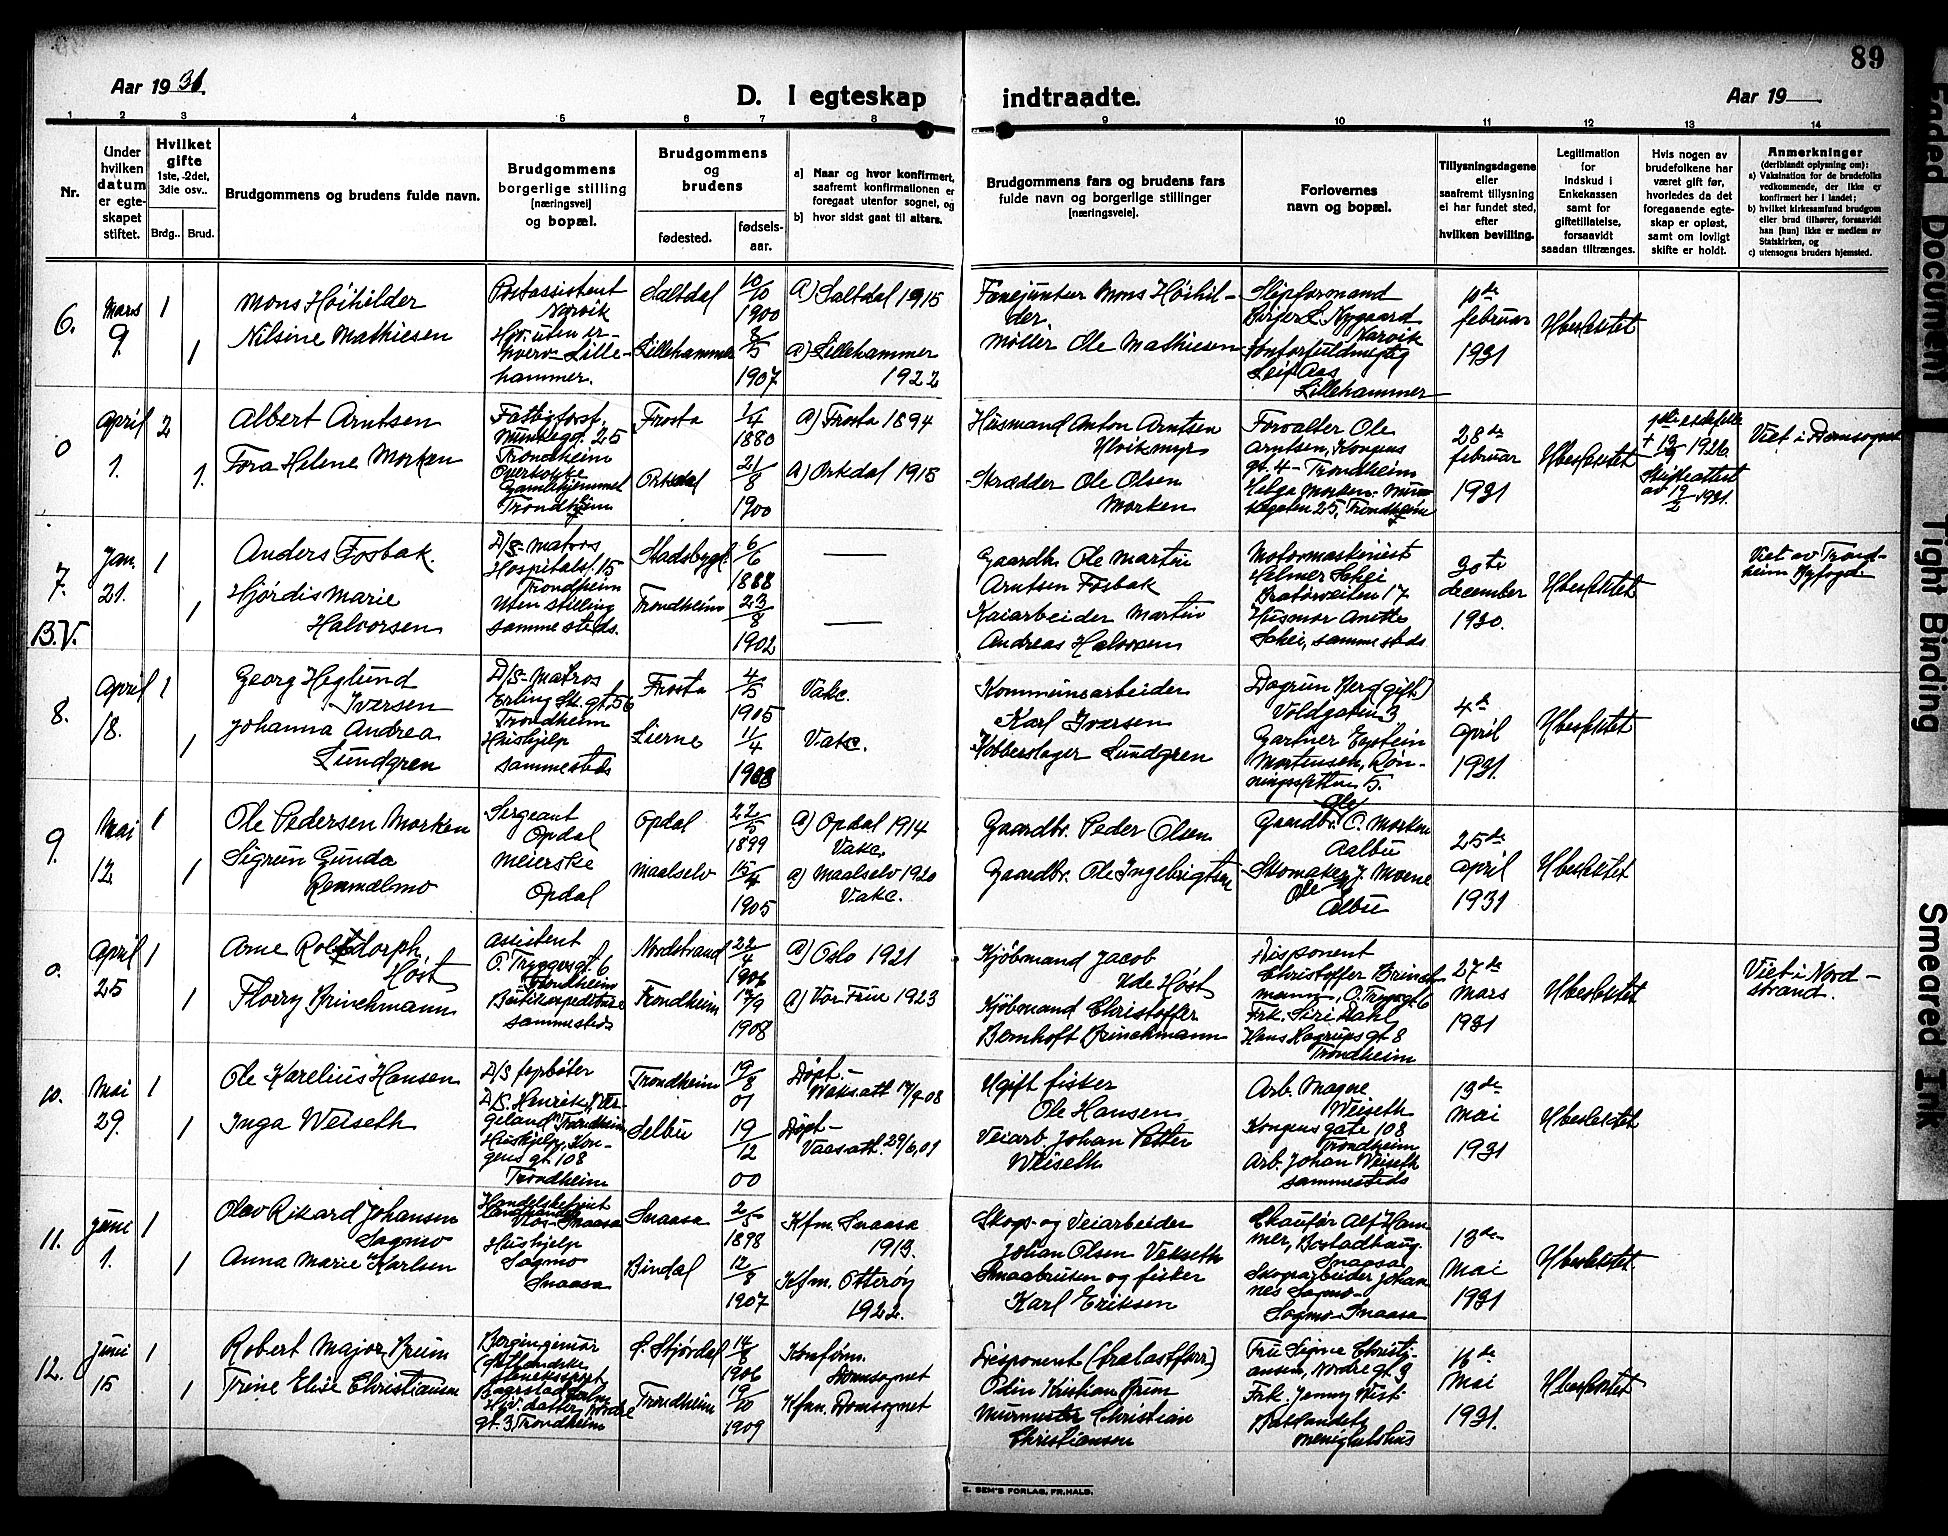 89
Aar 1931.
D. I egteskap indtraadte.
Aar 19
1 2 3 4 5 6 7 8 9 10 11 12 13 14
Nr.
Under hvilken datum er egteskapet stiftet.
Hvilket gifte 1ste, -2det, 3die osv..
Brdg.. Brud.
Brudgommens og brudens fulde navn.
Brudgommens borgerlige stilling [næringsvei] og bopæl.
Brudgommens og brudens
fødested.
fødselsaar.
a) Naar og hvor konfirmert, saafremt konfirmationen er foregaat utenfor sognet, og
b) hvor sidst gaat til alters.
Brudgommens fars og brudens fars fulde navn og borgerlige stillinger [næringsveie].
Forlovernes navn og bopæl.
Tillysningsdagene eller saafremt tillysning ei har fundet sted, efter hvilken bevilling.
Legitimation for Indskud i Enkekassen samt for giftetillatelse, forsaavidt saadan tiltrænges.
Hvis nogen av brudefolkene har været gift før, hvorledes da det foregaaende egteskap er opløst, samt om lovligt skifte er holdt.
Anmerkninger (deriblandt oplysning om):
a) Vaksination for de brudefolks vedkommende, der ikke er konfirmert her i landet;
b) hvilket kirkesamfund brudgom eller brud tilhører, forsaavidt han [hun] ikke er medlem av Statskirken, og
c) utensogns bruders hjemsted.
6.
Mars 9.
1
1
Mons Høihilder
Nilsine Mathiesen
Postassistent
Narvik
Hj.v. uten er-
hverv Lille-
hammer.
Saltdal
Lillehammer
10/10 1900
8/5 1907
a) Saltdal 1915
a) Lillehammer 1922
Fanejunker Mons Høihil-
der.
Møller Ole Mathiesen
Slipformand
Birger L. Nygaard
Narvik
Kontorfuldmegtig
Leif Aas
Lillehammer
10de februar 1931
Ubeslektet
0
April 1.
2
1.
Albert Arntsen
Tora Helene Morken
Munkegt. 25
Trondheim
Gamlehjemmet
Trondheim
Frosta
Orkdal
1/4 1880
21/8 1900
a) Frosta 1894
a) Orkdal 1915
Husmand Anton Arntsen
Ulvikmyr
Skrædder Ole Olsen
Morken
Forvalter Ole
Arntsen, Kongens
gt. 4 - Trondheim
Helga Morken. Mun-
kegaten 25, Trondheim
28de februar 1931
Ubeslektet
1926.
Skifteattest
av 19/2 1931.
Viet i Domsognet
7. B.V.
Jan. 21.
1
1
Anders Fosbak.
Hjørdis Marie
Halvorsen
D/S-matros
Hospitalsl. 15
Trondheim
Uten stilling
sammesteds.
Stadsbygd
Trondheim
6/6 1888
23/8 1902
Gaardb. Ole Martin
Arntsen Fosbak
Kaiarbeider Martin
Andreas Halvorsen
Motormaskinist
Helmer Sakei
Bratørveiten 17
Husmor Anetta
Sakei, sammesteds
30te december 1930.
Ubeslektet
Viet av Trond-
heim Byfogd.
8.
April 18.
1
1
Georg Heglund
Iversen
Johanna Andrea
Lundgren
D/S-Matros
Erling Sk. gt. 56
Trondheim
Hushjelp
sammesteds
Frosta
Lierne
4/5 1905
11/4 1908
Vakc.
Vakc.
Kommunearbeider
Karl Iversen
Kobberslager Lundgren
Dagrun Berg (gift)
Voldgaten 3
Gartner Eystein
Mortensen, Røn-
ningsletten 5.
4de april 1931.
Ubeslektet
9.
Mai 12
1
1
Ole Pedersen Morken
Sigrun Gunda
Renmælmo
Sergeant
Opdal
Meierske
Opdal
Opdal
Maalselv
22/5 1899
15/4 1905
a) Opdal 1914
Vakc.
a) Maalselv 1920
Vakc.
Gaardbr. Peder Olsen
Gaardbr. Ole Ingebrigtsen
Ole
Gaardbr. O. Morken
Aalbu
Skomaker J. Moene
Ole
Albu
25de april 1931
Ubeslektet
0.
April 25
1
1
Arne Rolfdorph
Høst
Florry Brinchmann
Assistent
O. Tryggvgt. 6
Trondheim
Butikexpeditrise
sammesteds
Nordstrand
Trondheim
22/4 1906
17/9 1908
a) Oslo 1921
a) Vor Frue 1923
Kjøbmand Jacob
Ude Høst
Kjøbmand Christoffer
Bernhoft Brinchmann
Disponent
Christoffer Brinch-
mann, O. Trygvgt 6
Frk. Siri Dahl
Hans Hagrups gt. 8
Trondheim
27de mars 1931
Ubeslektet
Viet i Nord-
strand.
10.
Mai 29.
1
1
Ole Karelius Hansen
Inga Weiseth
D/S fyrbøter
D/S. Henrik Wer-
geland Trondheim
Hushjelp, Kon-
gens gt. 108
Trondheim
Trondheim
Selbu
19/8 01
19/12 00
Døpt -
Vaks.att 17/9-08
Døpt -
Vacs.att. 29/6,01
Ugift fisker
Ole Hansen
Veiarb. Johan Petter
Weiseth
Arb. Magne
Weiseth
Kongens gate 108
Trondheim
Arb. Johan Weiseth
sammesteds
13de mai 1931
Ubeslektet
11.
Juni 1.
1
1
Olav Rikard Johansen
Sagmo
Anna Marie Karlsen
Handelsbetjent
Snaasa
Hushjelp
Sagmo
Snaasa
Snaasa
Bindal
2/5 1898
12/8 1907
Kfm. Snaasa
1913.
Kfm. Otterøy
1922.
Skogs- og Veiarbeider
Johan Olsen Vekseth
Smaabruker og fisker
Karl Eriksen
Chaufør Alf Ham-
mer, Bostadhaug.
Snaasa
Skogsarbeider Johan-
nes Sagmo -
Sagmo - Snaasa
13de mai 1931
Ubeslektet
12.
Juni 15.
1
1
Robert Major Brun
Trine Elise Christiansen
Bergingeniør
gt. 3 Trondheim
S. Stjørdal
Trondheim
14/8 1906
19/10 1909
Konfirm.
Domsognet
Kfm. Domsognet
Disponent
Odin Kristian Brun
Murmester Christian
Christiansen
Fru Signe Christi-
ansen, Nordre gt. 3
Frk. Jenny West-
Batvandets
menighetshus
16de Mai 1931.
Ubeslektet
E. SEM'S FORLAG, FR.HALD.
Faded Document
Tight Binding
Smeared Ink